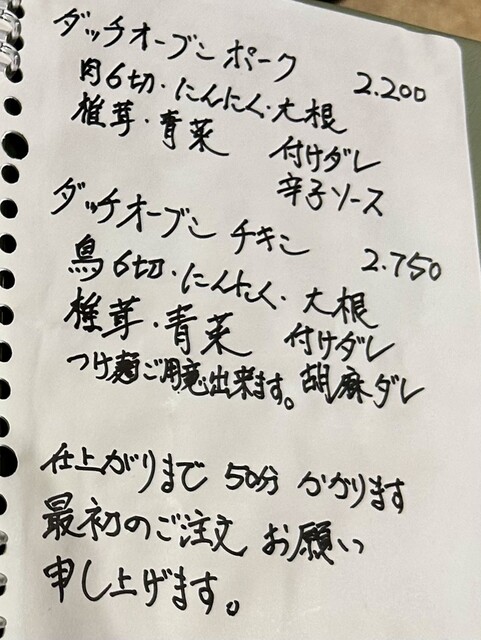 ダッチオーブン ポーク 2.200
肉6切・にんにく・大根
椎茸・青菜 付けダレ
辛子ソース
ダッチオーブン チキン 2.750
鳥6切・にんにく・大根
椎茸・青菜 付けダレ
つけ麺ご用意出来ます。胡麻ダレ
仕上がりまで 50分 かかります
最初のご注文 お願い
申し上げます。